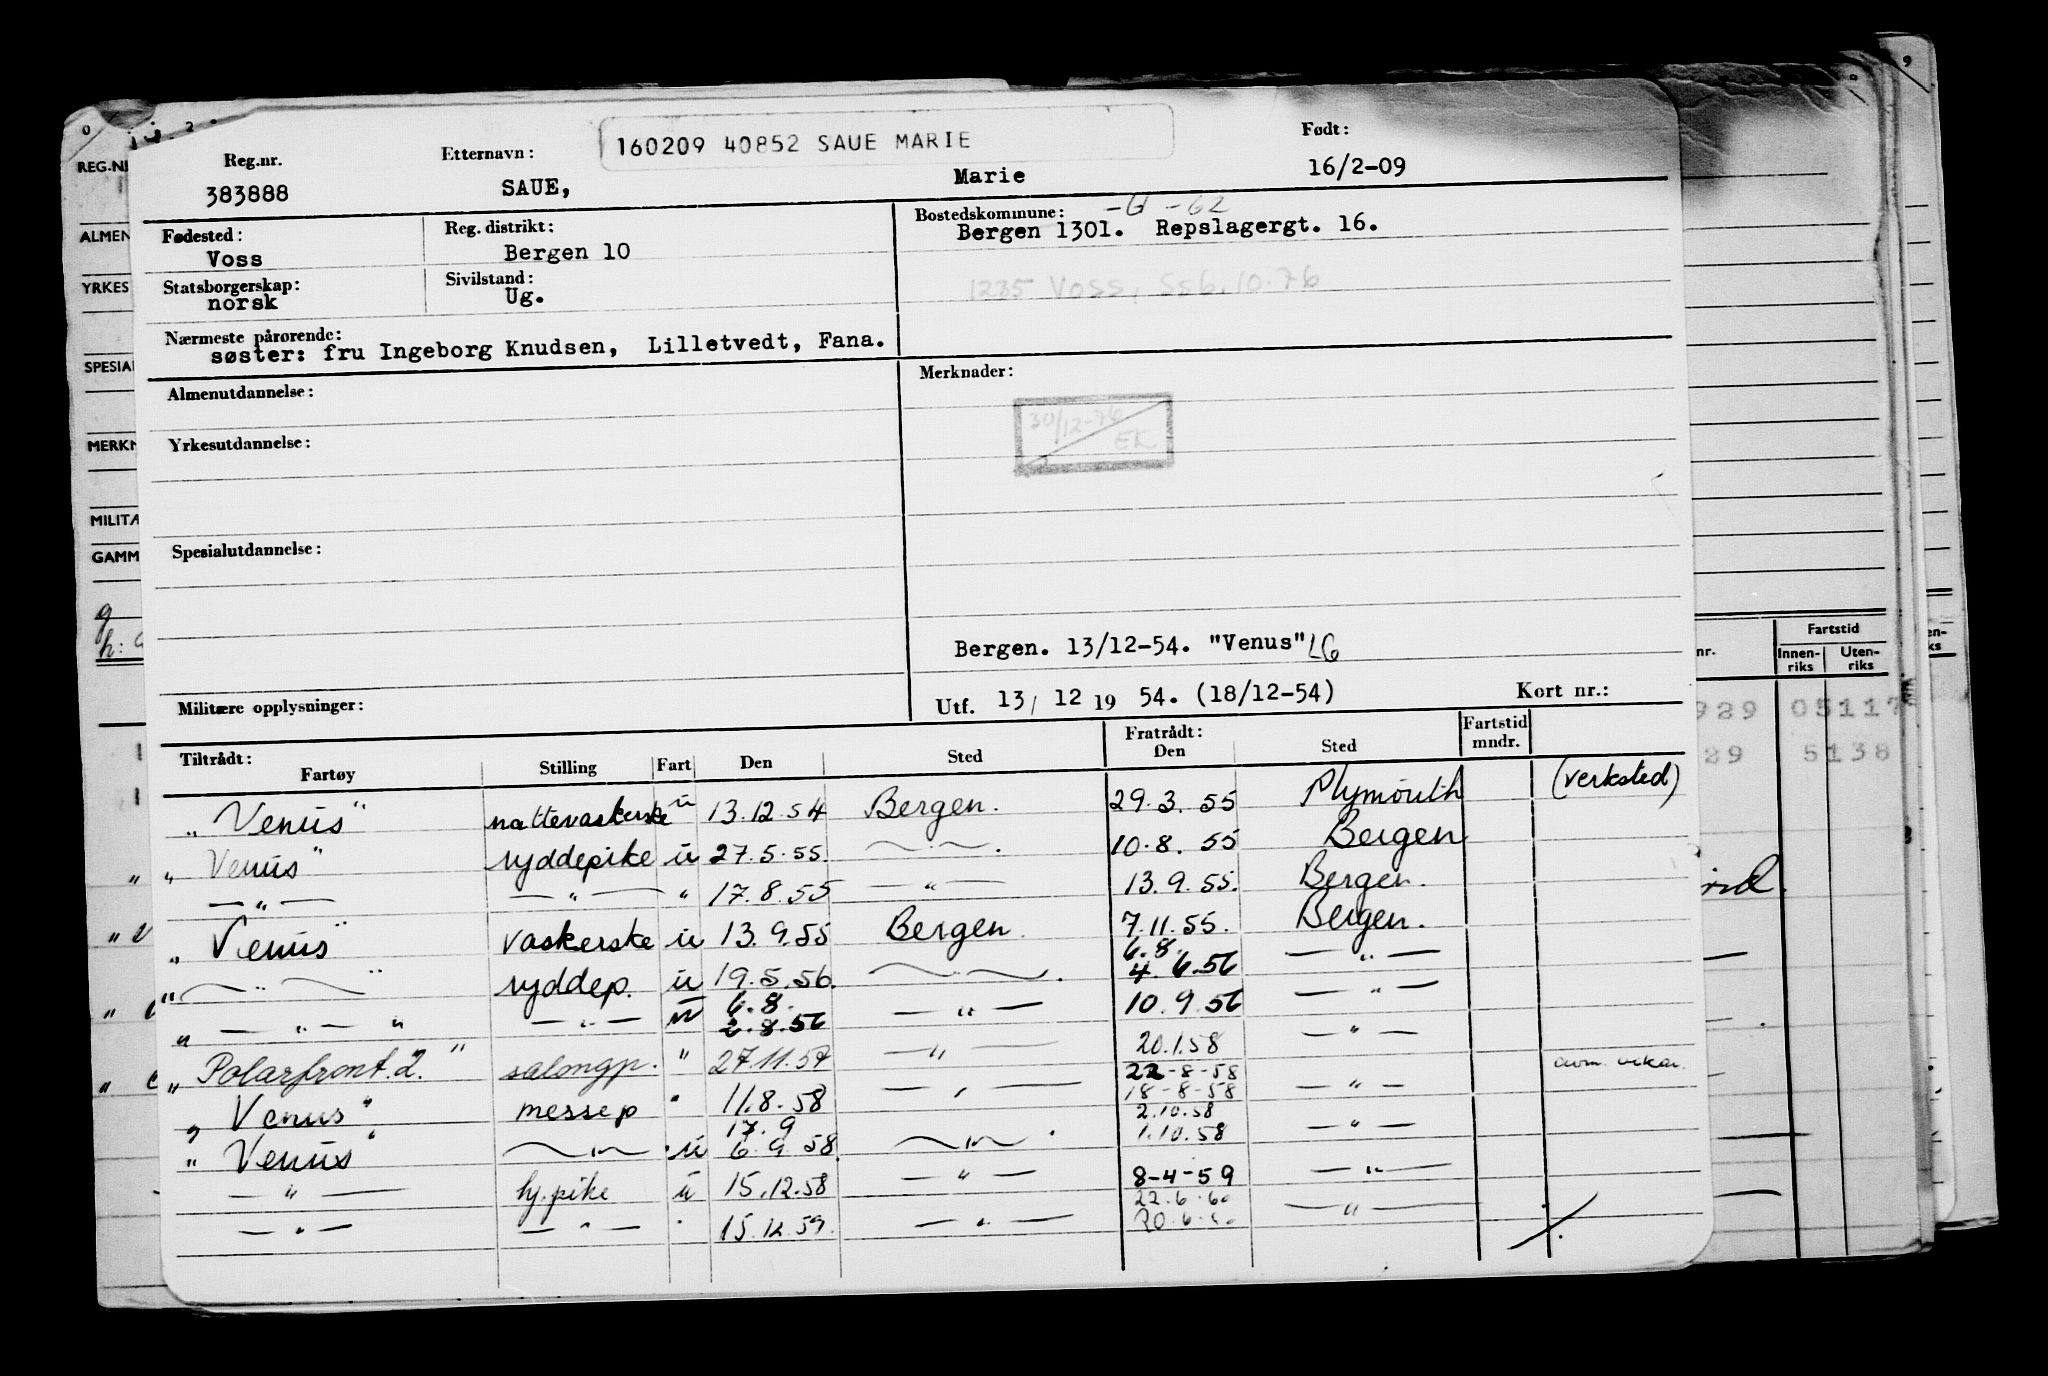 160209 40852 SAUE MARIE
Reg.nr. Etternavn: Født:
383888 SAUE, Marie 16/2-09
Fødested: Reg. distrikt: Bostedskommune:
Voss Bergen 10 Bergen 1301. Repslagergt. 16.
Statsborgerskap: Sivilstand:
norsk Ug.
1235 Voss, Ssb. 10-76
Nærmeste pårørende:
søster: fru Ingeborg Knudsen, Lilletvedt, Fana.
Almenutdannelse: Merknader:
30/12-76
EK
Yrkesutdannelse:
Spesialutdannelse:
Bergen. 13/12-54. "Venus" LG
Militære opplysninger: Utf. 13/ 12 19 54. (18/12-54) Kort nr.:
Tiltrådt: Fratrådt: Fartstid
Fartøy Stilling Fart Den Sted Den Sted mndr.
"Venus" nattevaskerske ü 13.12.54 Bergen. 29.3.55 Plymouth (verksted)
"Venus" ryddepike ü 27.5.55. — " —. 10.8.55 Bergen
— " — — " — " 17.8.55 — " — 13.9.55. Bergen.
"Venus" vaskerske ü 13.9.55 Bergen. 7.11.55. Bergen.
6.8.
" — " — " ryddep. ü 19.5.56. — " —. 4.6.56 — " —
6.8.
" — " — " — " — ü 2.8.56 — " — 10.9.56 — " —
"Polarfront.2." salongp. " 27.11.57 — " — 20.1.58 — " —
22-8-58
"Venus" messep " 11.8.58 — " — 18-8-58 — " —
17.9 2.10.58
"Venus" — " — ü 6.9.58. — " — 1.10.58 — " —
— " — hj.pike ü 15.12.58 — " — 8-4-59 — " —
22.6.60
— " — — " — " 15.12.59. — " — 20.6.60 — " —
REG.N
ALMEN
YRKES
SPESIA
MERKN
MILITÆ
GAMM
nr. Fartstid
Innen-
riks Uten-
riks
929 05117
29 5138